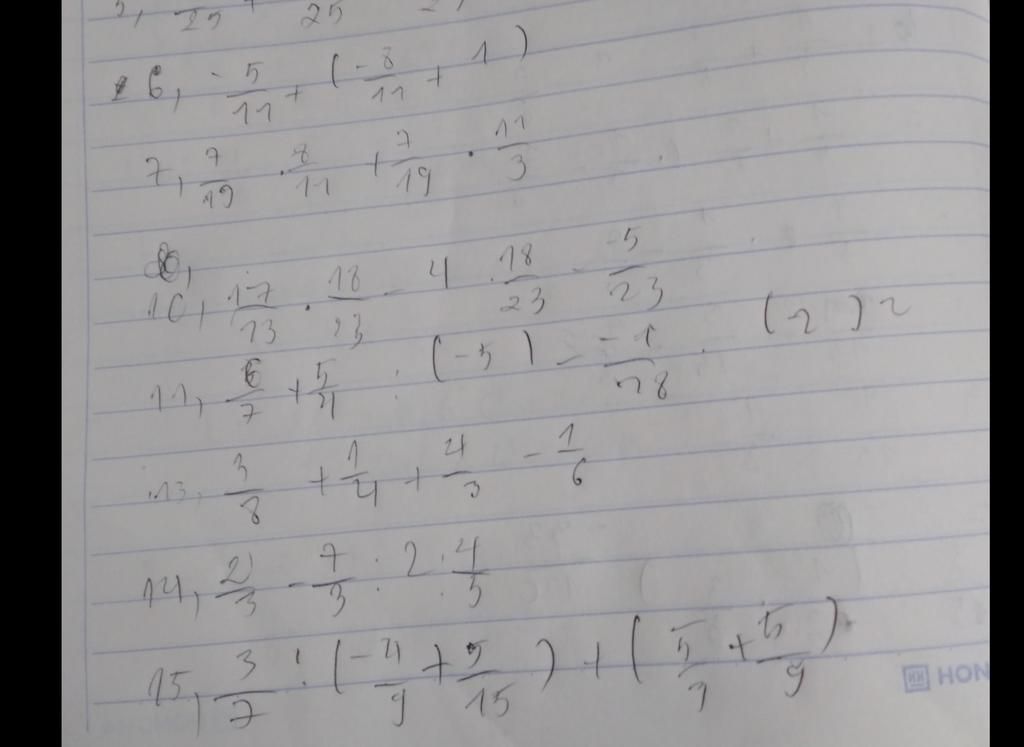 6, -5/11 + (-8/11 + 1)
7, 7/19 . 8/11 + 7/19 . 11/3
10, 17/13 . 18/23 - 4 . 18/23 - 5/23
11, 6/7 + 5/4 : (-5) - -1/28 . (2)2
13, 3/8 + 1/4 + 4/3 - 1/6
14, 2/3 - 7/3 : 2 . 4/5
15, 3/7 : (-4/9 + 5/15) + (5/9 + 5/9)
HON